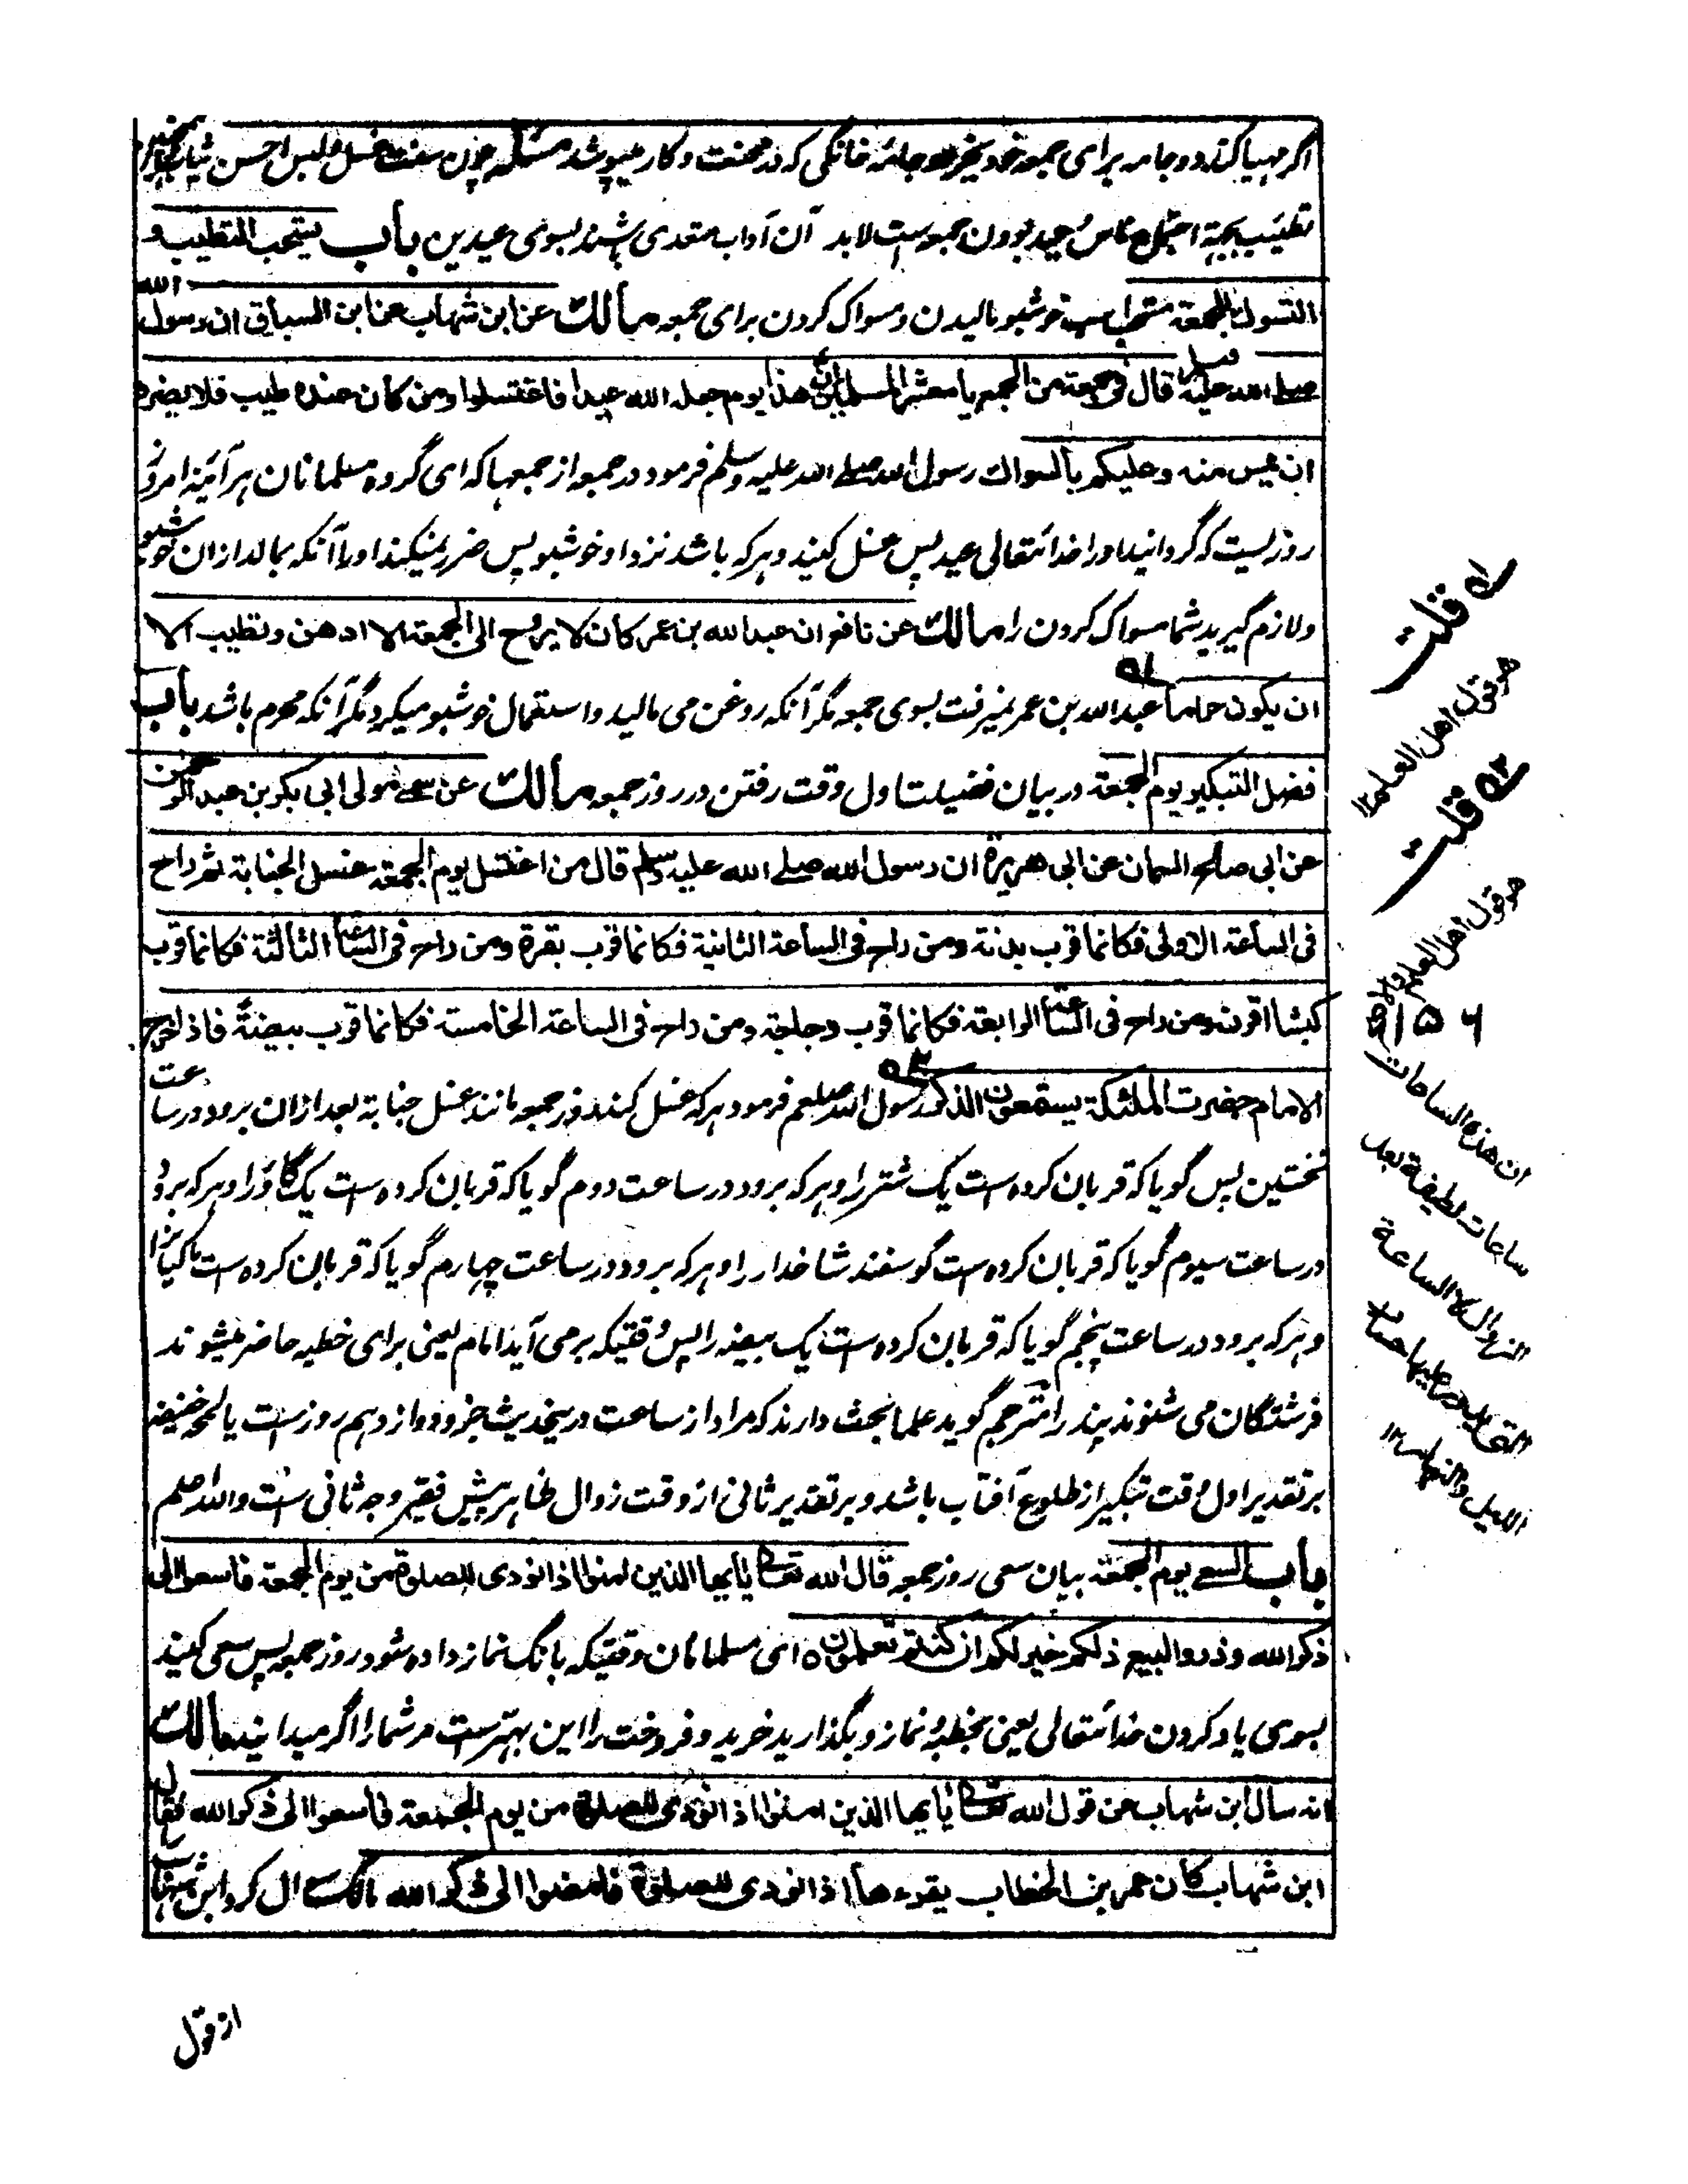 اگر مهیا کند دو جامه برای جمعه خود بخیر دو جامه خانگی که در محنت و کار میپوشد مسئله چون سنت غسل و لبس احسن ثیاب
تطیب بجهة اجتماع ناس و عید بودن جمعه است لابد آن آداب متعدی باشند بسوی عیدین باب یستحب التطیب و
التسوك للجمعة مستحب است خوشبو مالیدن و مسواک کردن برای جمعه مالك عن ابن شهاب عن ابن السباق ان رسول الله
صلے الله علیه وسلم قال فی جمعة من الجمع یا معشر المسلمین ان هذا یوم جعله الله عیدا فاغتسلوا ومن كان عنده طیب فلا یضره
ان یمس منه وعلیكم بالسواك رسول الله صلے الله علیه وسلم فرمود در جمعه از جمعها که ای گروه مسلمانان هر آئینه امروز
روزیست که گردانید او را خدا تعالی عید پس غسل کنید و هر که باشد نزد او خوشبو پس ضرر نمیکند او را آنکه بمالد ازان خوشبو
ولازم گیرید شما مسواک کردن را مالك عن نافع ان عبد الله بن عمر كان لا یروح الی الجمعة الا ادهن وتطیب الا
ان یكون حراما عبد الله بن عمر نمیرفت بسوی جمعه مگر آنکه روغن می مالید و استعمال خوشبو میکرد مگر آنکه محرم باشد باب
فضل التبكیر یوم الجمعة در بیان فضیلت اول وقت رفتن در روز جمعه مالك عن سمی مولی ابی بكر بن عبد الرحمن
عن ابی صالح السمان عن ابی هریرة ان رسول الله صلے الله علیه وسلم قال من اغتسل یوم الجمعة غسل الجنابة ثم راح
فی الساعة الاولی فكانما قرب بدنة ومن راح فی الساعة الثانیة فكانما قرب بقرة ومن راح فی الساعة الثالثة فكانما قرب
كبشا اقرن ومن راح فی الساعة الرابعة فكانما قرب دجاجة ومن راح فی الساعة الخامسة فكانما قرب بیضة فاذا خرج
الامام حضرت الملئكة یستمعون الذكر رسول الله صلعم فرمود هر که غسل کند روز جمعه مانند غسل جنابة بعد ازان برود در ساعت
نخستین پس گویا که قربان کرده است یک شتر را و هر که برود در ساعت دوم گویا که قربان کرده است یک گاؤ را و هر که برود
در ساعت سیوم گویا که قربان کرده است گوسفند شاخدار را و هر که برود در ساعت چهارم گویا که قربان کرده است ماکیان را
و هر که برود در ساعت پنجم گویا که قربان کرده است یک بیضه را پس وقتیکه برمی آید امام یعنی برای خطبه حاضر میشوند
فرشتگان می شنوند پند را مترجم گوید علما بحث دارند که مراد از ساعت درینحدیث جزو دوازدهم روز است یا لمحه خفیفه
بر تقدیر اول وقت تبکیر از طلوع آفتاب باشد و بر تقدیر ثانی از وقت زوال ظاهر پیش فقیر وجه ثانی است والله اعلم
باب السعی یوم الجمعة بیان سعی روز جمعه قال الله تعالی یا ایها الذین امنوا اذا نودی للصلوة من یوم الجمعة فاسعوا الی
ذكر الله وذروا البیع ذلكم خیر لكم ان كنتم تعلمون ه ای مسلمانان وقتیکه بانگ نماز داده شود روز جمعه پس سعی کنید
بسوی یاد کردن خدا تعالی یعنی بخطبه و نماز و بگذارید خرید و فروخت را این بهتر است مر شما را اگر میدانید مالك
انه سال ابن شهاب عن قول الله تعالی یا ایها الذین امنوا اذا نودی للصلوة من یوم الجمعة فاسعوا الی ذكر الله فقال
ابن شهاب كان عمر بن الخطاب یقرءها اذا نودی للصلوة فامضوا الی ذكر الله مالک سوال کرد ابن شهاب
از قول
۵۱ قلت
هو قول اهل العلم ۱۲
۵۲ قلت
هو قول اهل العلم
ان هذه الساعات
ساعات لطیفة بعد
الزوال لا الساعة
التی یدور علیها حساب
اللیل والنهار ۱۲